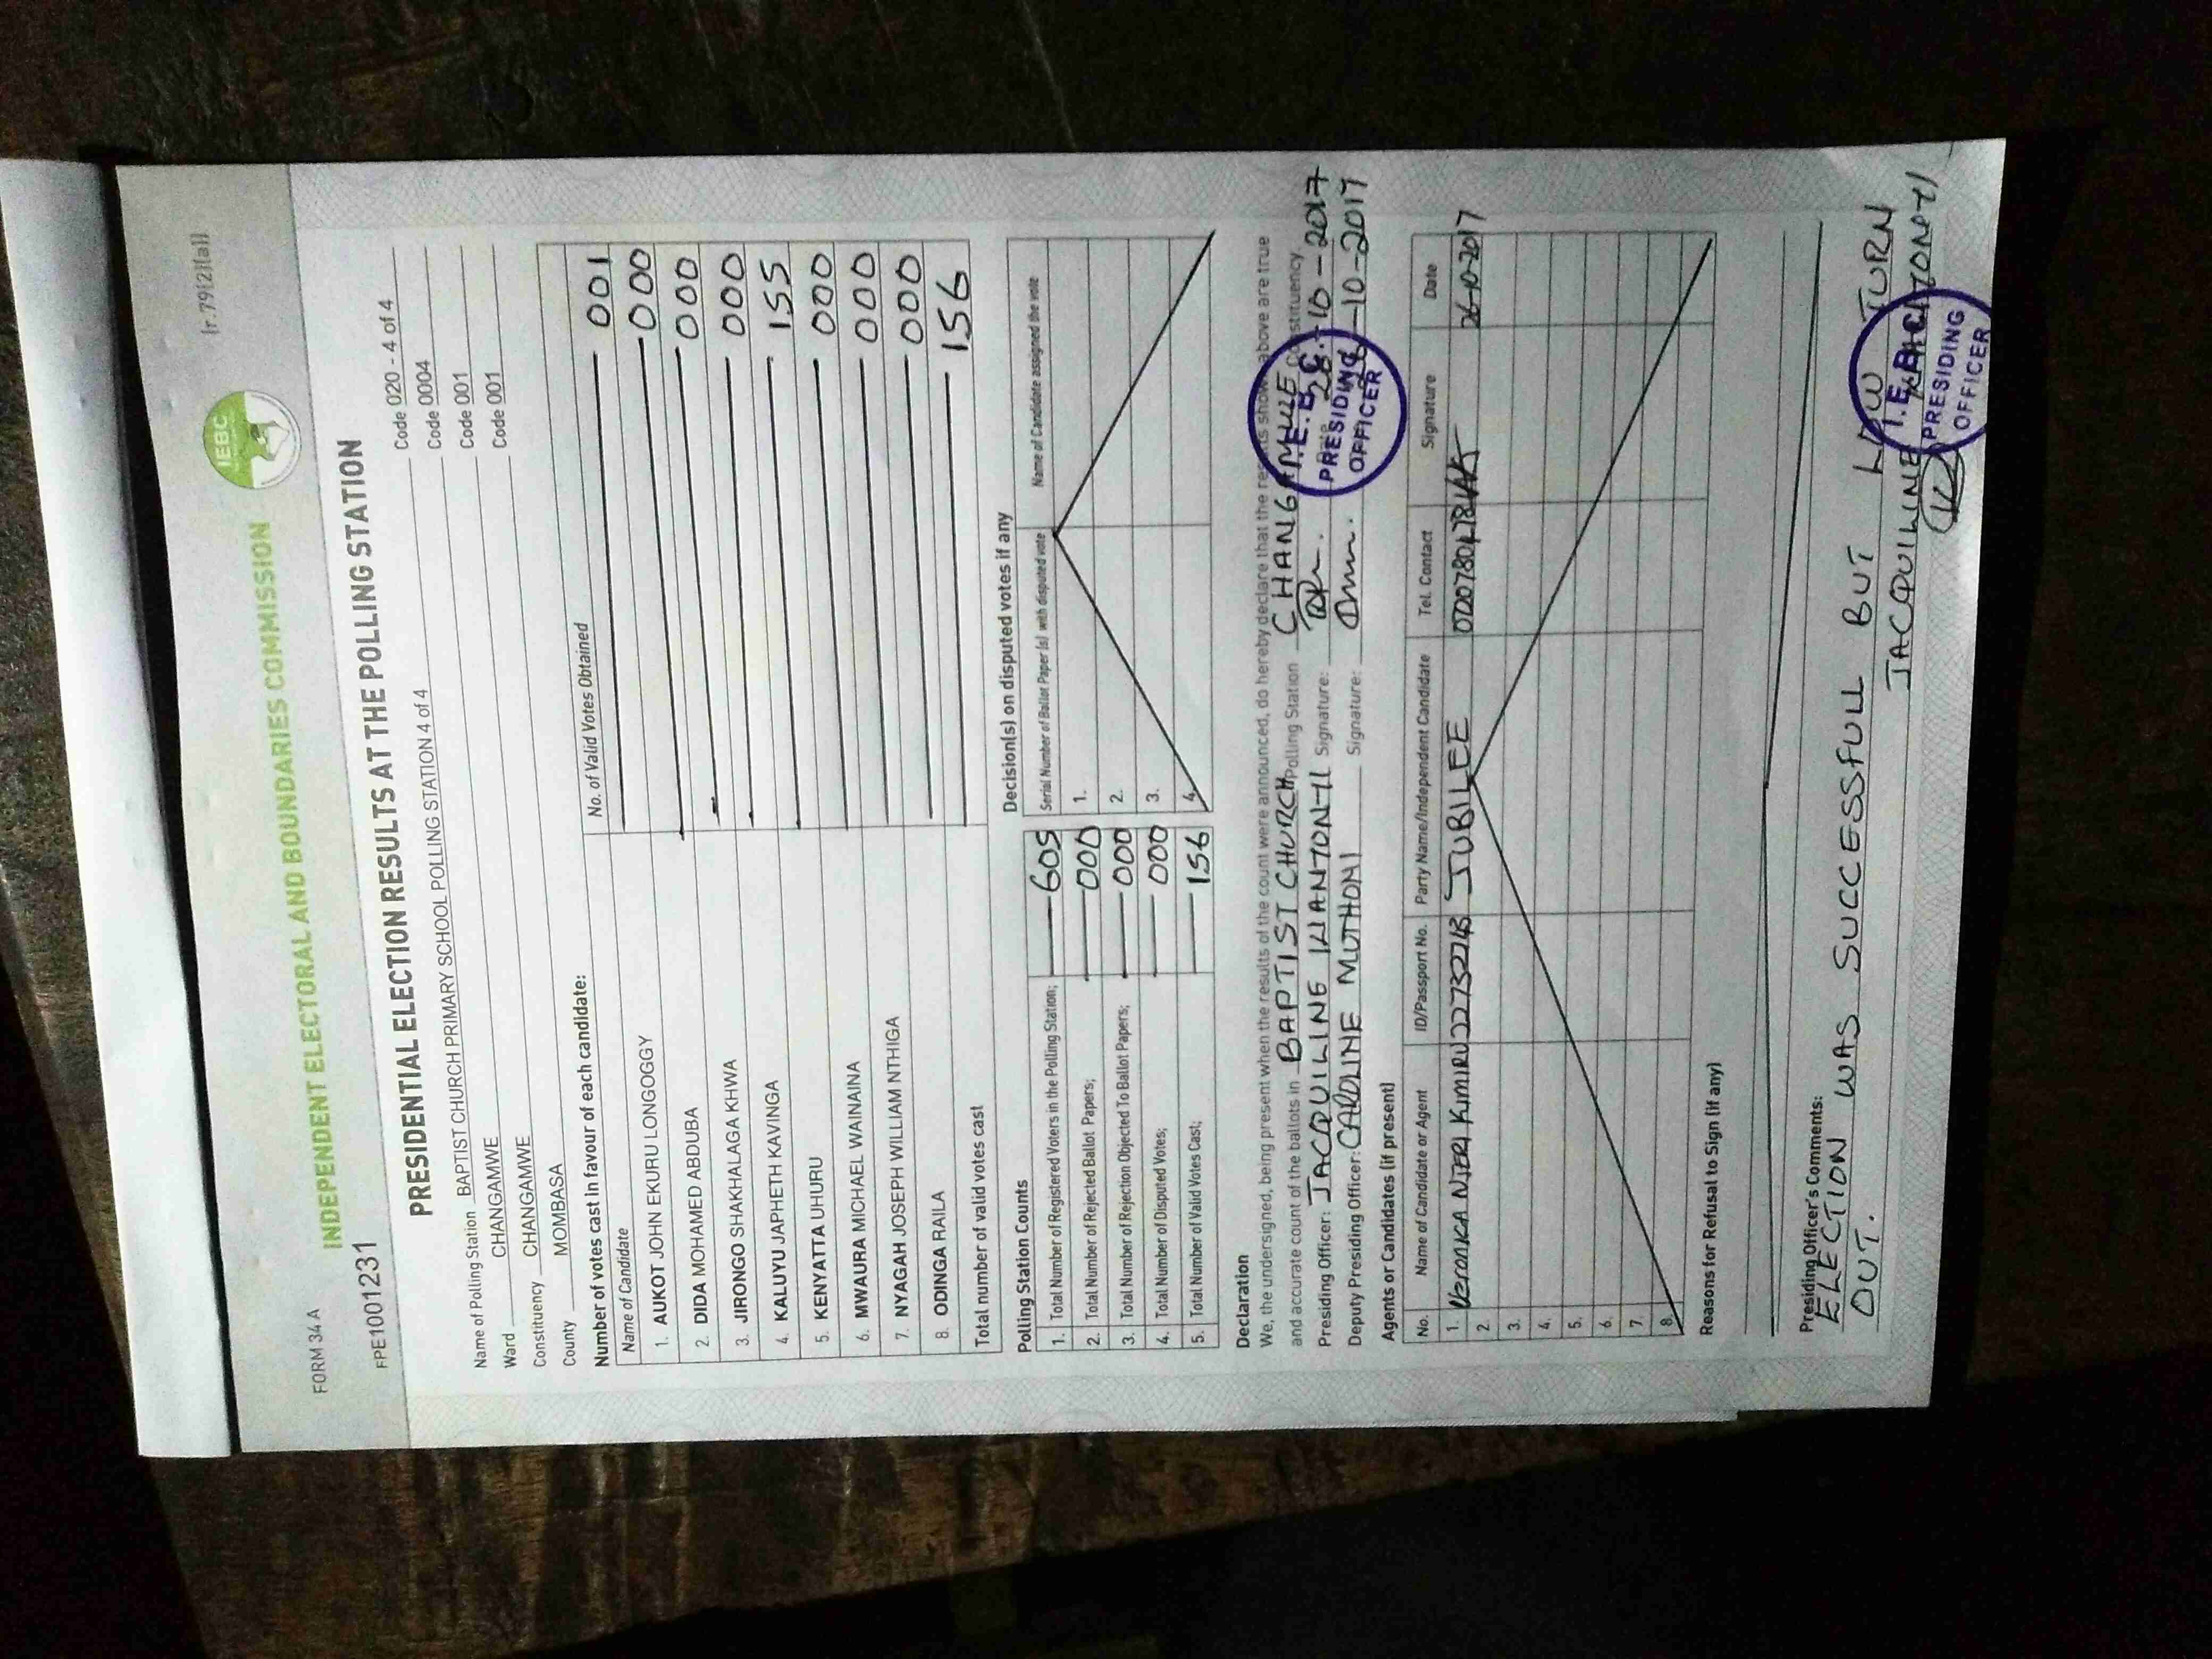 FORM 34 A
[r.79(2)(a)]
IEBC
INDEPENDENT ELECTORAL AND BOUNDARIES COMMISSION
FPE1001231
PRESIDENTIAL ELECTION RESULTS AT THE POLLING STATION
Name of Polling Station BAPTIST CHURCH PRIMARY SCHOOL POLLING STATION 4 of 4 Code 020 - 4 of 4
Ward CHANGAMWE Code 0004
Constituency CHANGAMWE Code 001
County MOMBASA Code 001
Number of votes cast in favour of each candidate:
Name of Candidate No. of Valid Votes Obtained
1. AUKOT JOHN EKURU LONGOGGY 001
2. DIDA MOHAMED ABDUBA 000
3. JIRONGO SHAKHALAGA KHWA 000
4. KALUYU JAPHETH KAVINGA 000
5. KENYATTA UHURU 155
6. MWAURA MICHAEL WAINAINA 000
7. NYAGAH JOSEPH WILLIAM NTHIGA 000
8. ODINGA RAILA 000
Total number of valid votes cast 156
Polling Station Counts
1. Total Number of Registered Voters in the Polling Station; 605
2. Total Number of Rejected Ballot Papers; 000
3. Total Number of Rejection Objected To Ballot Papers; 000
4. Total Number of Disputed Votes; 000
5. Total Number of Valid Votes Cast; 156
Decision(s) on disputed votes if any
Serial Number of Ballot Paper (s) with disputed vote Name of Candidate assigned the vote
1.
2.
3.
4.
Declaration
We, the undersigned, being present when the results of the count were announced, do hereby declare that the results shown above are true
and accurate count of the ballots in BAPTIST CHURCH Polling Station CHANGAMWE Constituency.
Presiding Officer: JACQUILINE Signature: 26-10-2017
Deputy Presiding Officer: CAROLINE MUTHONI Signature: 26-10-2017
I.E.B.C. PRESIDING OFFICER
Agents or Candidates (if present)
No. Name of Candidate or Agent ID/Passport No. Party Name/Independent Candidate Tel. Contact Signature Date
1. Veronica NJERI JUBILEE 26-10-2017
2.
3.
4.
5.
6.
7.
8.
Reasons for Refusal to Sign (if any)
Presiding Officer's Comments:
ELECTION WAS SUCCESSFULL BUT LOW TURN
OUT. JACQUILINE
I.E.B.C. PRESIDING OFFICER